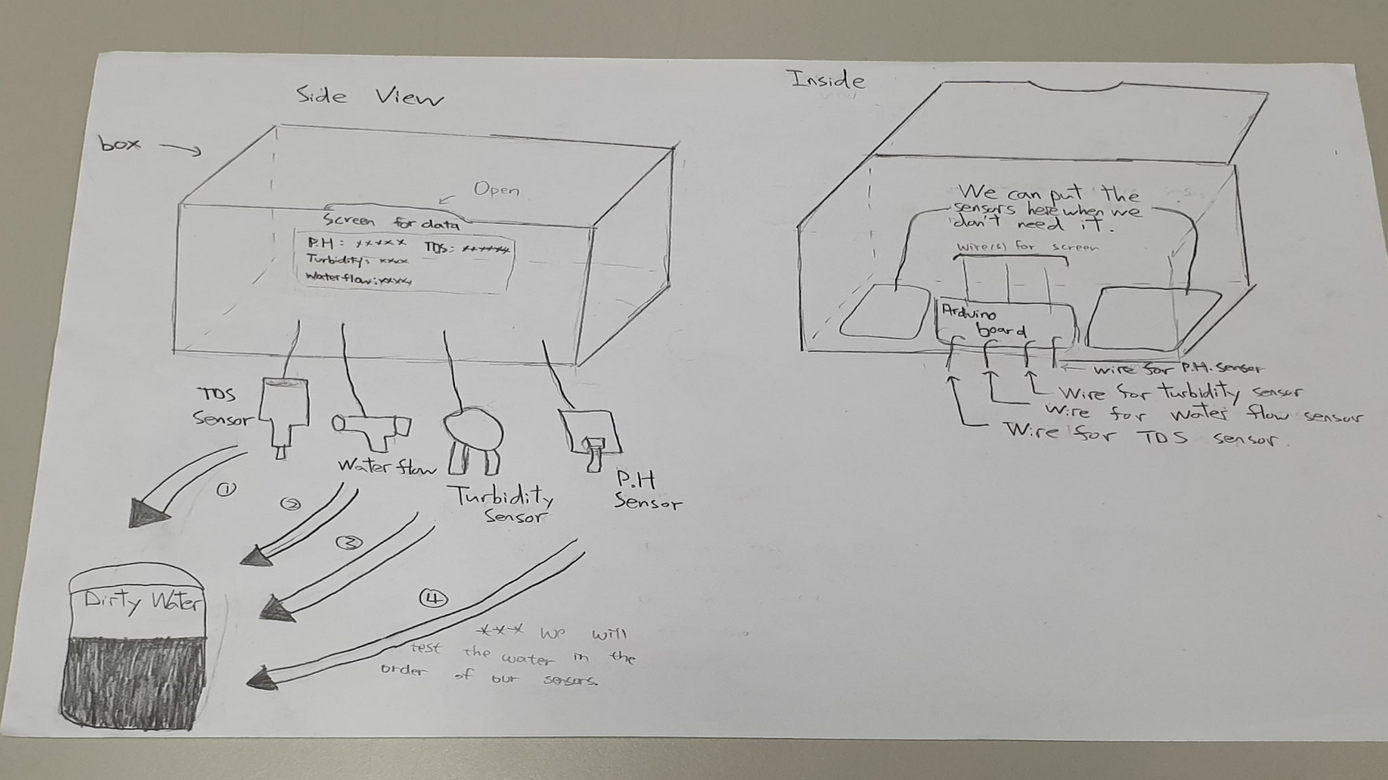 Side View
box
Open
Screen for data
P.H : ××××× TDS: ××××××
Turbidity: ×××
Waterflow:××××
TDS
Sensor
Water flow
Turbidity
Sensor
P.H
Sensor
①
②
③
④
Dirty Water
*** We will
test the water in the
order of our sensors.
Inside
We can put the
sensors here when we
don't need it.
Wire(s) for screen
Arduino
board
wire for P.H. sensor
Wire for turbidity sensor
Wire for water flow sensor
Wire for TDS sensor.